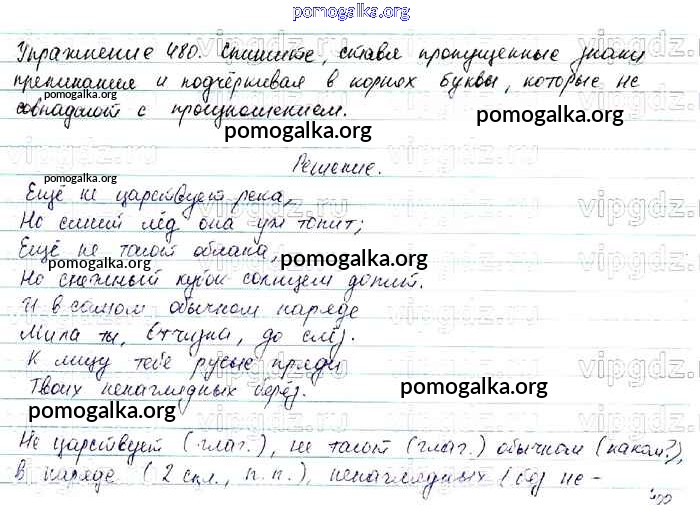 pomogalka.org
Упражнение 480. Спишите, ставя пропущенные знаки
препинания и подчёркивая в корнях буквы, которые не
pomogalka.org
совпадают с произношением.
pomogalka.org
pomogalka.org
Решение.
Ещё не царствует река,
pomogalka.org
Но синий лёд она уж топит;
Ещё не тают облака,
pomogalka.org
pomogalka.org
Но снежный кубок солнцем допит.
И в самом обычном наряде
Мила ты, Отчизна, до слёз.
К лицу тебе русые пряди
Твоих ненаглядных берёз.
pomogalka.org
pomogalka.org
Не царствует (глаг.), не тают (глаг.) обычном (каком?),
В наряде (2 скл., п.п.), ненаглядных (без не-
pomogalka.org
vipgdz.ru
vipgdz.ru
vipgdz.ru
vipgdz.ru
vipgdz.ru
vipgdz.ru